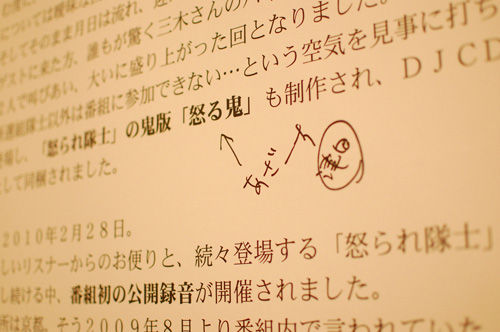 については曖昧
そしてそのまま月日は流れ、
ゲストに来た方、誰もが驚く三木さんの
人で叫びあい、大いに盛り上がった回となりました。
隊士以外は番組に参加できない…という空気を見事に打ち
場し、「怒られ隊士」の鬼版「怒る鬼」も制作され、DJCD
して同梱されました。
あざ
2010年2月28日。
しいリスナーからのお便りと、続々登場する「怒られ隊士」
し続ける中、番組初の公開録音が開催されました。
所は京都。そう2009年8月より番組内で言われていた